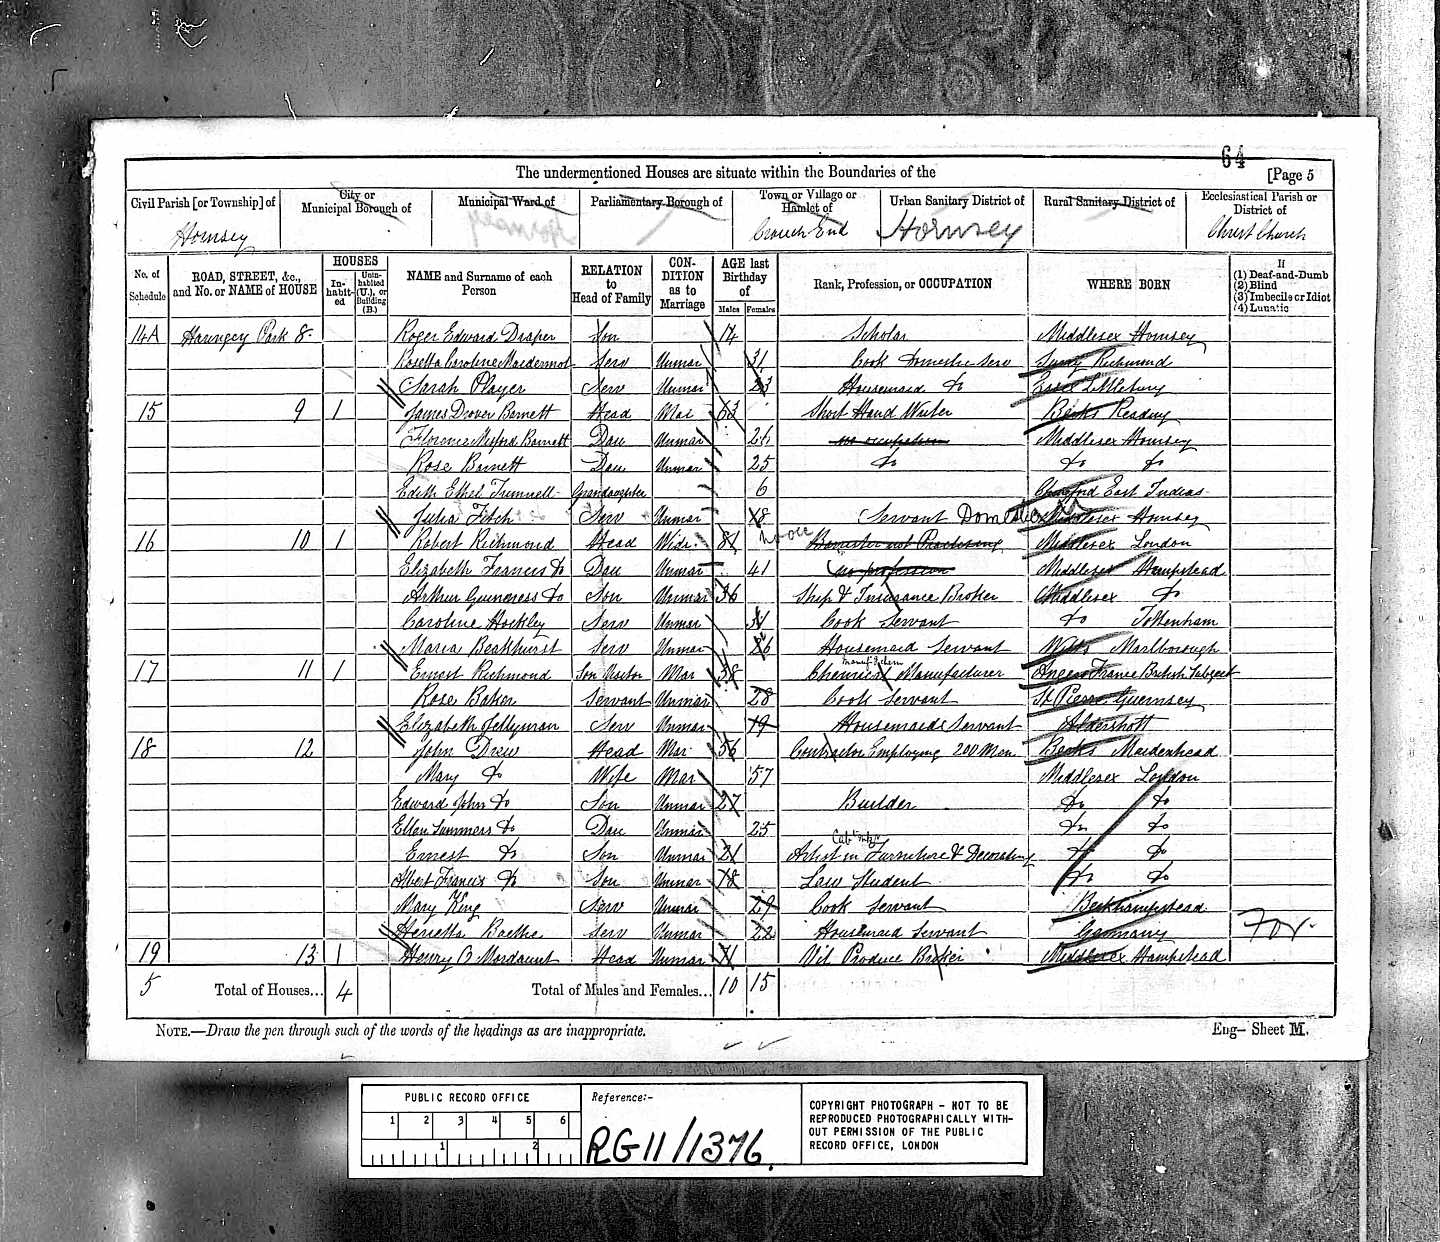 64
The undermentioned Houses are situate within the Boundaries of the [Page 5
Civil Parish [or Township] of City or Municipal Borough of Municipal Ward of Parliamentary Borough of Town or Village or Hamlet of Urban Sanitary District of Rural Sanitary District of Ecclesiastical Parish or District of
Hornsey Crouch End Hornsey Christ Church
No. of Schedule ROAD, STREET, &c., and No. or NAME of HOUSE HOUSES Inhabited Uninhabited (U.), or Building (B.) NAME and Surname of each Person RELATION to Head of Family CONDITION as to Marriage AGE last Birthday of Males Females Rank, Profession, or OCCUPATION WHERE BORN If (1) Deaf-and-Dumb (2) Blind (3) Imbecile or Idiot (4) Lunatic
14A Haringey Park 8 Roger Edward Draper Son 14 Scholar Middlesex Hornsey
Rosetta Caroline Serv Unmar 31 Cook Domestic Serv Surrey Richmond
Sarah Player Serv Unmar 23 Housemaid Do Essex
15 9 1 James Drover Barnett Head Mar 63 Short Hand Writer Berks Reading
Florence Barnett Dau Unmar no occupation Middlesex Hornsey
Rose Barnett Dau Unmar 25 Do Do Do
Edith Ethel Granddaughter 6 East Indias
Julia Fitch Serv Unmar 18 Servant Domestic Middlesex Hornsey
16 10 1 Robert Richmond Head Widr 81 no occ Barrister not Practising Middlesex London
Elizabeth Francis Do Dau Unmar 41 no profession Middlesex Hampstead
Arthur Guinness Do Son Unmar 36 Ship & Insurance Broker Middlesex Do
Caroline Hockley Serv Unmar Cook Servant Do Tottenham
Maria Beakhurst Serv Unmar 26 Housemaid Servant Wilts Marlborough
17 11 1 Ernest Richmond Son Visitor Mar 38 Chemical Manufacturer France British Subject
Rose Baker Servant Unmar 28 Cook Servant St Pierre Guernsey
Elizabeth Jellyman Serv Unmar 19 Housemaid Servant Aldershott
18 12 John Drew Head Mar 56 Contractor Employing 200 Men Berks Maidenhead
Mary Do Wife Mar 57 Middlesex London
Edward John Do Son Unmar 27 Builder Do Do
Ellen Summers Do Dau Unmar 25 Do Do
Ernest Do Son Unmar 21 Artist in Furniture & Decorating Do Do
Albert Francis Do Son Unmar 18 Law Student Do Do
Mary King Serv Unmar 29 Cook Servant Berkhampstead
Henretta Baethe Serv Unmar 22 Housemaid Servant Germany For.
19 13 1 Henry C Mordaunt Head Unmar 71 Produce Broker Middlesex Hampstead
5 Total of Houses... 4 Total of Males and Females... 10 15
NOTE.—Draw the pen through such of the words of the headings as are inappropriate. Eng— Sheet M.
PUBLIC RECORD OFFICE
1 2 3 4 5 6
1 2
Reference:-
RG11/1376
COPYRIGHT PHOTOGRAPH - NOT TO BE
REPRODUCED PHOTOGRAPHICALLY WITH-
OUT PERMISSION OF THE PUBLIC
RECORD OFFICE, LONDON